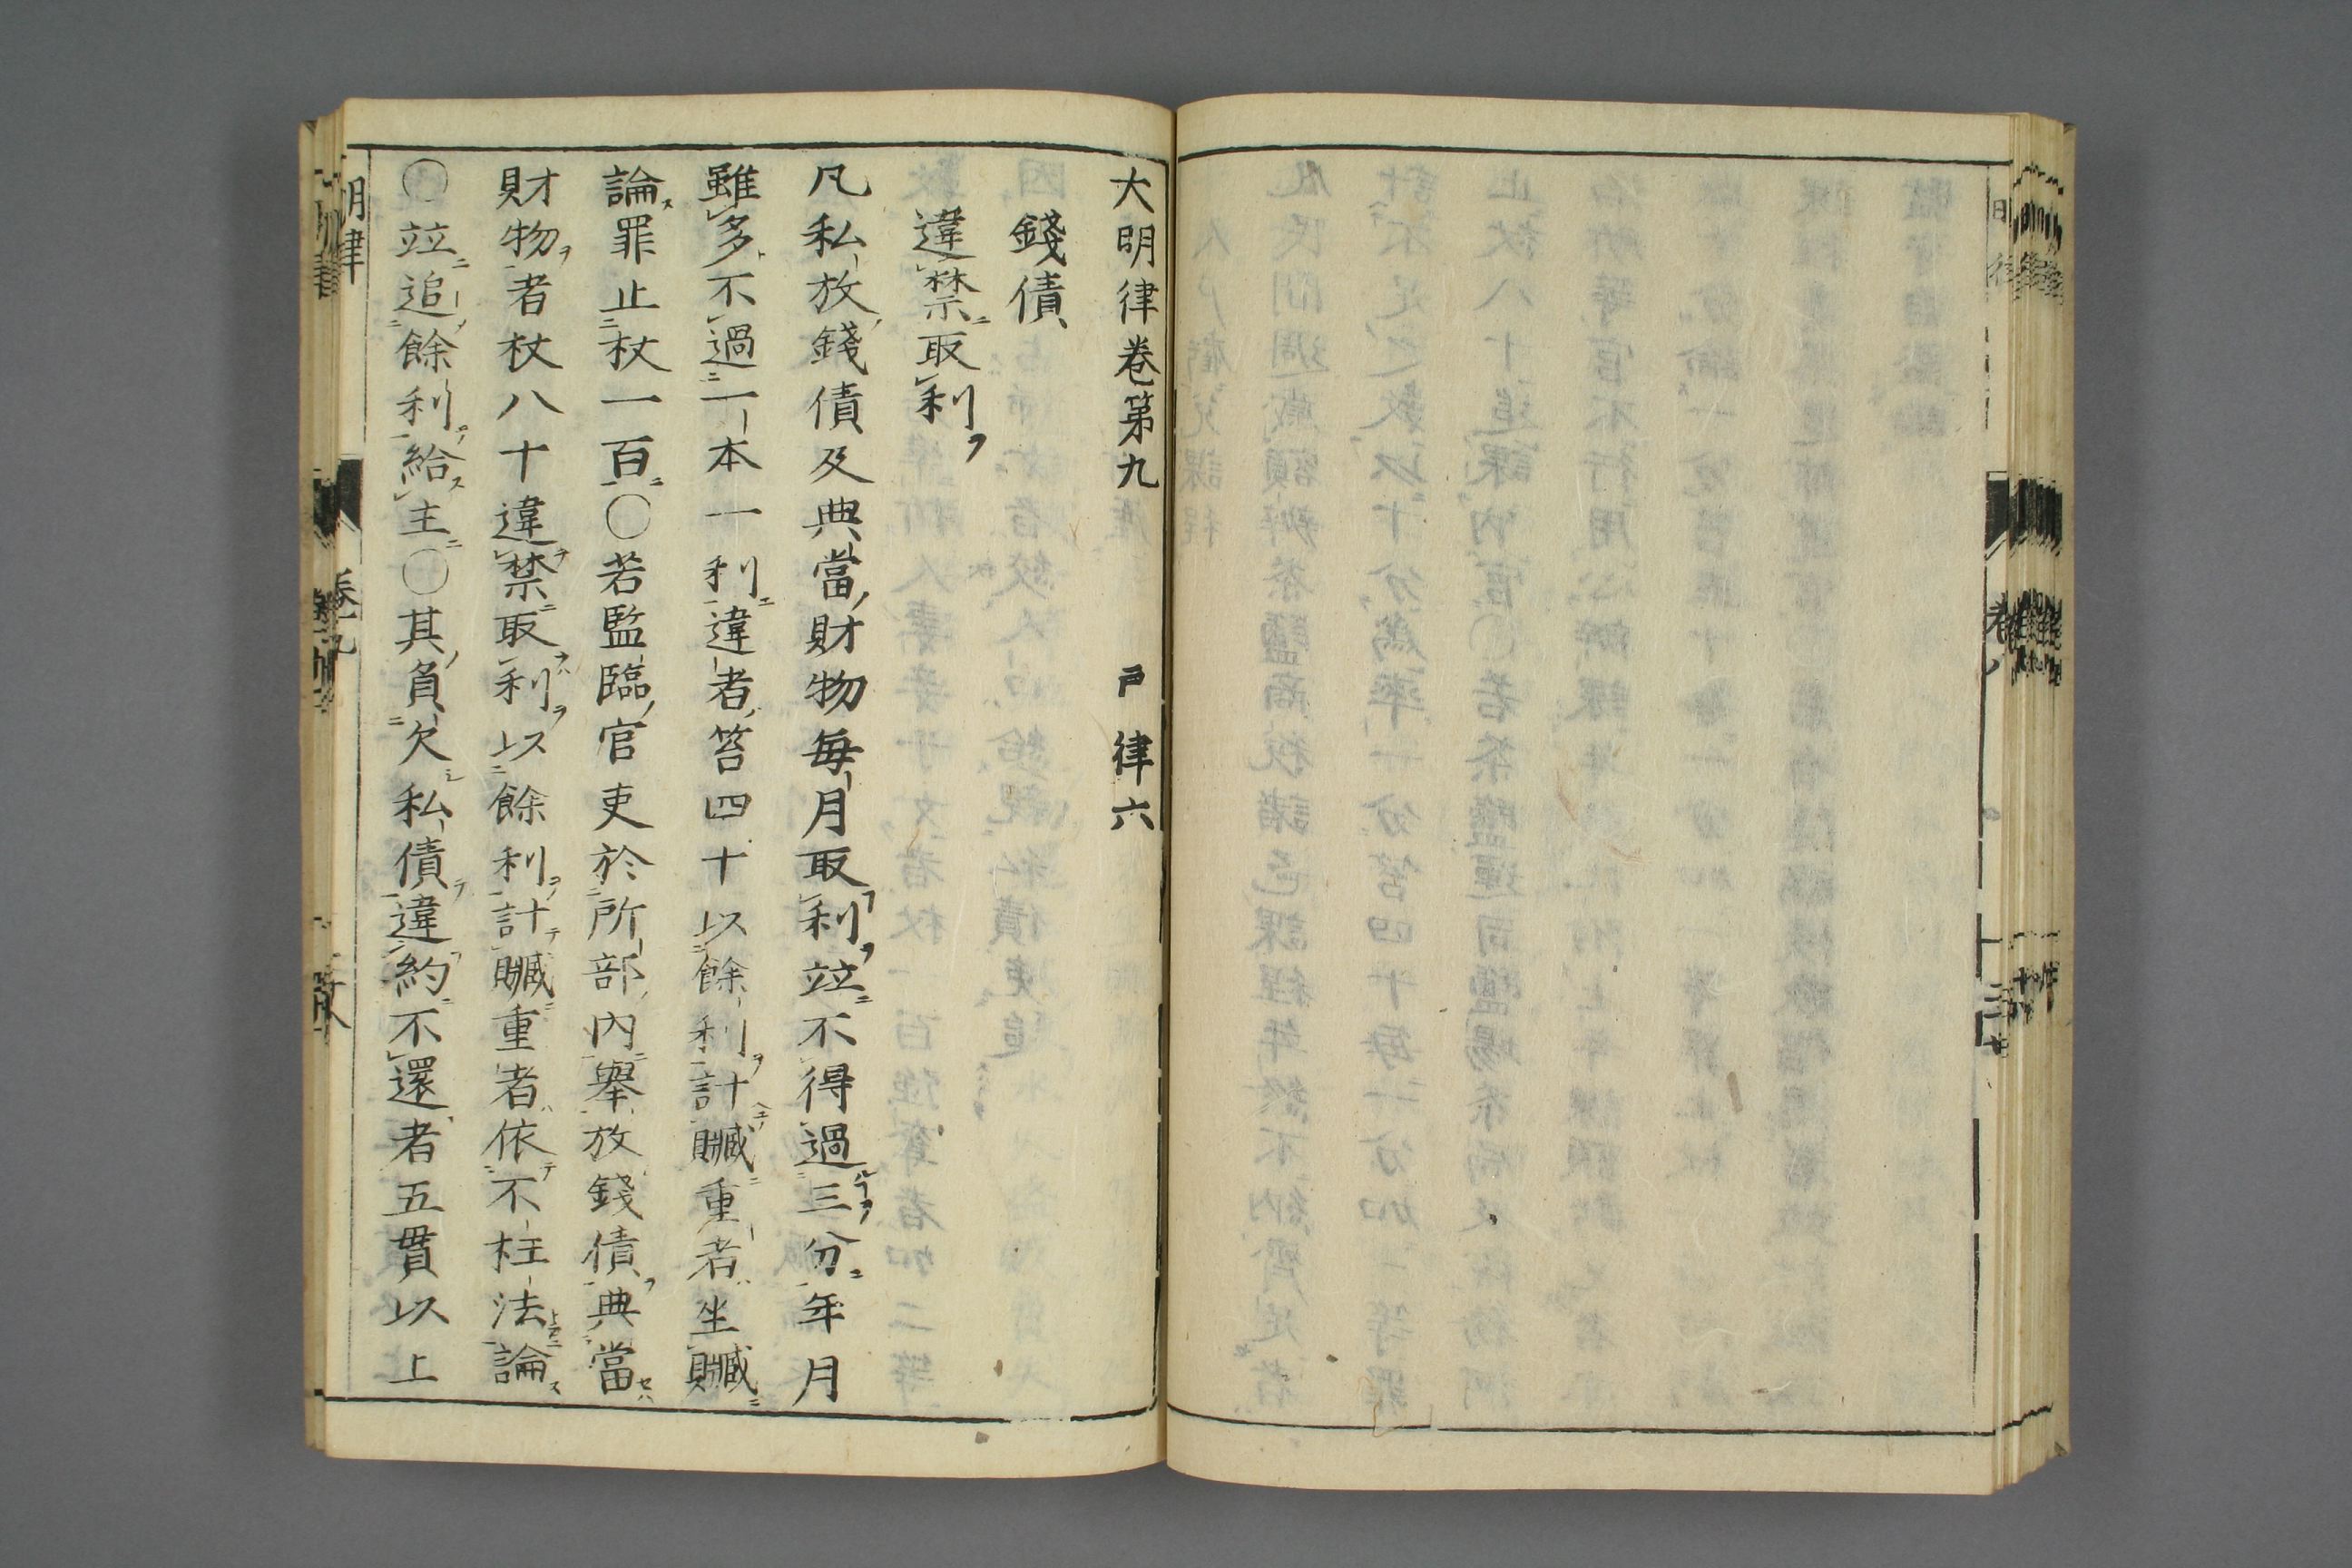 大明律卷第九 戶律六
錢債
違禁取利
凡私放錢債及典當財物每月取利竝不得過三分年月
雖多不過一本一利違者笞四十以餘利計贓重者坐贓
論罪止杖一百〇若監臨官吏於所部內舉放錢債典當
財物者杖八十違禁取利以餘利計贓重者依不枉法論
〇竝追餘利給主〇其負欠私債違約不還者五貫以上